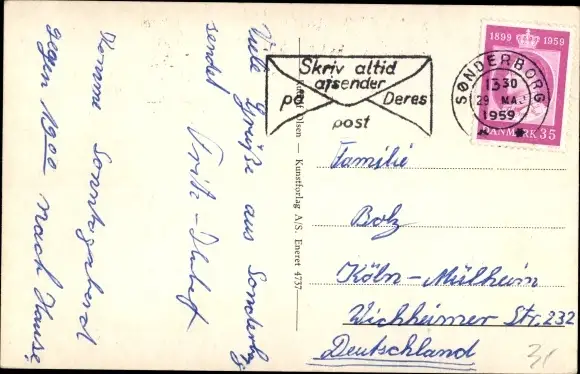 Viele Grüße aus Sonderbg
sendet Fritz-
Komme Sonntagabend
gegen 1900 nach Hause
Rudolf Olsen — Kunstforlag A/S. Eneret 4737
Skriv altid
afsender
på Deres
post
1899 1959
SØNDERBORG
13.30
29 MAJ
1959
DANMARK 35
Familie
Bolz
Köln-Mülheim
Wichheimer Str. 232
Deutschland